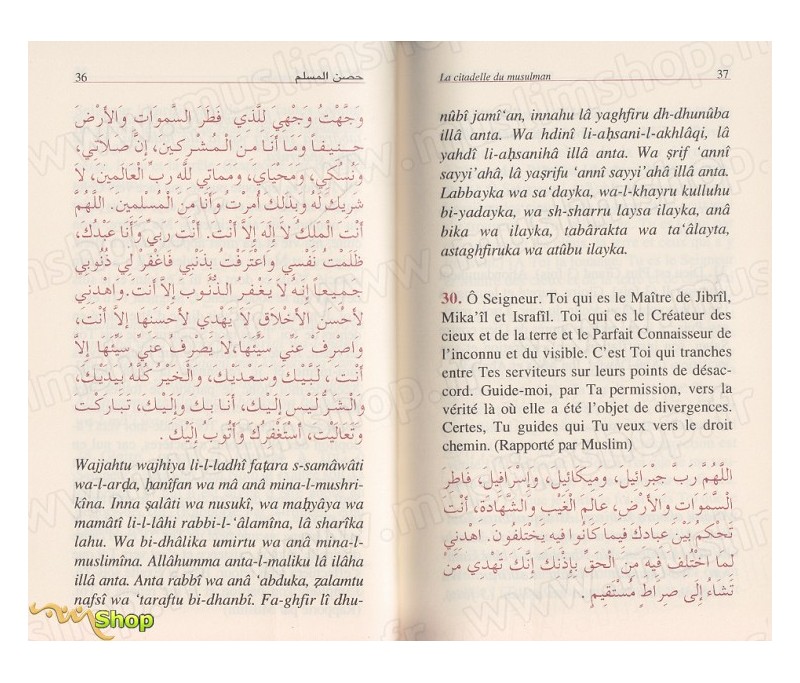 36
حصن المسلم
وَجَّهْتُ وَجْهِيَ لِلَّذِي فَطَرَ السَّمَوَاتِ وَالأَرْضَ
حَنِيفاً وَمَا أَنَا مِنَ الْمُشْرِكِينَ، إِنَّ صَلاَتِي،
وَنُسُكِي، وَمَحْيَايَ، وَمَمَاتِي لِلَّهِ رَبِّ الْعَالَمِينَ، لَا
شَرِيكَ لَهُ وَبِذَلِكَ أُمِرْتُ وَأَنَا مِنَ الْمُسْلِمِينَ. اللَّهُمَّ
أَنْتَ الْمَلِكُ لَا إِلَهَ إِلاَّ أَنْتَ. أَنْتَ رَبِّي وَأَنَا عَبْدُكَ،
ظَلَمْتُ نَفْسِي وَاعْتَرَفْتُ بِذَنْبِي فَاغْفِرْ لِي ذُنُوبِي
جَمِيعاً إِنَّهُ لَا يَغْفِرُ الذُّنُوبَ إِلاَّ أَنْتَ. وَاهْدِنِي
لأَحْسَنِ الأَخْلَاقِ لَا يَهْدِي لأَحْسَنِهَا إِلاَّ أَنْتَ،
وَاصْرِفْ عَنِّي سَيِّئَهَا، لَا يَصْرِفُ عَنِّي سَيِّئَهَا إِلاَّ
أَنْتَ، لَبَّيْكَ وَسَعْدَيْكَ، وَالْخَيْرُ كُلُّهُ بِيَدَيْكَ،
وَالشَّرُّ لَيْسَ إِلَيْكَ، أَنَا بِكَ وَإِلَيْكَ، تَبَارَكْتَ
وَتَعَالَيْتَ، أَسْتَغْفِرُكَ وَأَتُوبُ إِلَيْكَ.
Wajjahtu wajhiya li-l-ladhî faṭara s-samâwâti
wa-l-arḍa, ḥanîfan wa mâ anâ mina-l-mushri-
kîna. Inna ṣalâti wa nusukî, wa maḥyâya wa
mamatî li-l-lâhi rabbi-l-‘âlamîna, lâ sharîka
lahu. Wa bi-dhâlika umirtu wa anâ mina-l-
muslimîna. Allâhumma anta-l-maliku lâ ilâha
illâ anta. Anta rabbî wa anâ ‘abduka, ẓalamtu
nafsî wa ‘taraftu bi-dhanbî. Fa-ghfir lî dhu-
La citadelle du musulman
37
nûbî jamî‘an, innahu lâ yaghfiru dh-dhunûba
illâ anta. Wa hdinî li-aḥsani-l-akhlâqi, lâ
yahdî li-aḥsanihâ illâ anta. Wa ṣrif ‘annî
sayyi’ahâ, lâ yaṣrifu ‘annî sayyi’ahâ illâ anta.
Labbayka wa sa‘dayka, wa-l-khayru kulluhu
bi-yadayka, wa sh-sharru laysa ilayka, anâ
bika wa ilayka, tabârakta wa ta‘âlayta,
astaghfiruka wa atûbu ilayka.
30. Ô Seigneur. Toi qui es le Maître de Jibrîl,
Mika’îl et Israfîl. Toi qui es le Créateur des
cieux et de la terre et le Parfait Connaisseur de
l’inconnu et du visible. C’est Toi qui tranches
entre Tes serviteurs sur leurs points de désac-
cord. Guide-moi, par Ta permission, vers la
vérité là où elle a été l’objet de divergences.
Certes, Tu guides qui Tu veux vers le droit
chemin. (Rapporté par Muslim)
اللَّهُمَّ رَبَّ جِبْرَائِيلَ، وَمِيكَائِيلَ، وَإِسْرَافِيلَ، فَاطِرَ
السَّمَوَاتِ وَالأَرْضِ، عَالِمَ الْغَيْبِ وَالشَّهَادَةِ، أَنْتَ
تَحْكُمُ بَيْنَ عِبَادِكَ فِيمَا كَانُوا فِيهِ يَخْتَلِفُونَ. اهْدِنِي
لِمَا اخْتُلِفَ فِيهِ مِنَ الْحَقِّ بِإِذْنِكَ إِنَّكَ تَهْدِي مَنْ
تَشَاءُ إِلَى صِرَاطٍ مُسْتَقِيمٍ.
Shop
www.muslimshop.fr